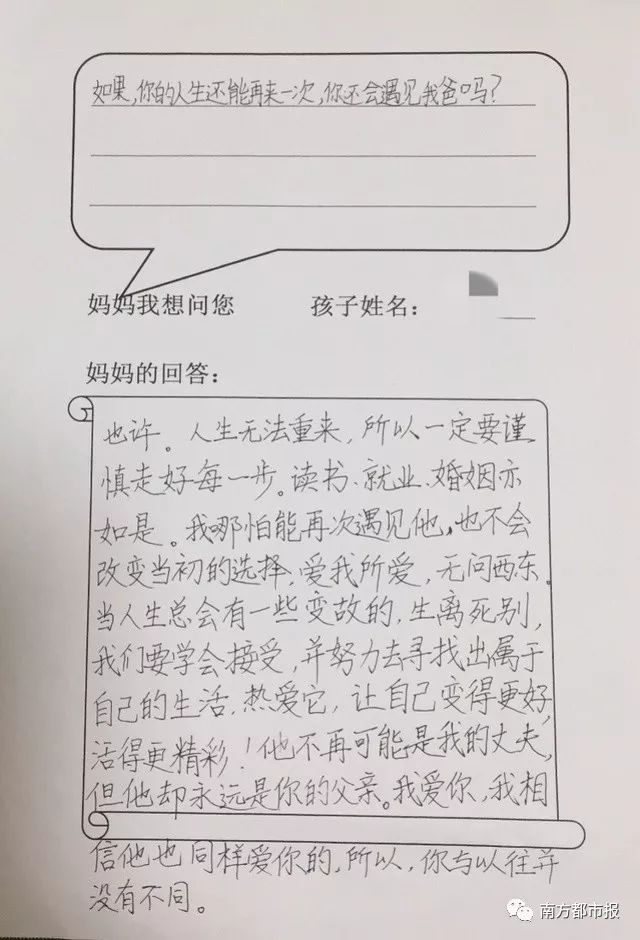 如果,你的人生还能再来一次,你还会遇见我爸吗?
妈妈我想问您 孩子姓名：
妈妈的回答：
也许。人生无法重来,所以一定要谨
慎走好每一步。读书、就业、婚姻亦
如是。我哪怕能再次遇见他,也不会
改变当初的选择,爱我所爱,无问西东。
当人生总会有一些变故的,生离死别,
我们要学会接受,并努力去寻找出属于
自己的生活,热爱它,让自己变得更好,
活得更精彩!他不再可能是我的丈夫,
但他却永远是你的父亲。我爱你,我相
信他也同样爱你的,所以,你与以往并
没有不同。
南方都市报